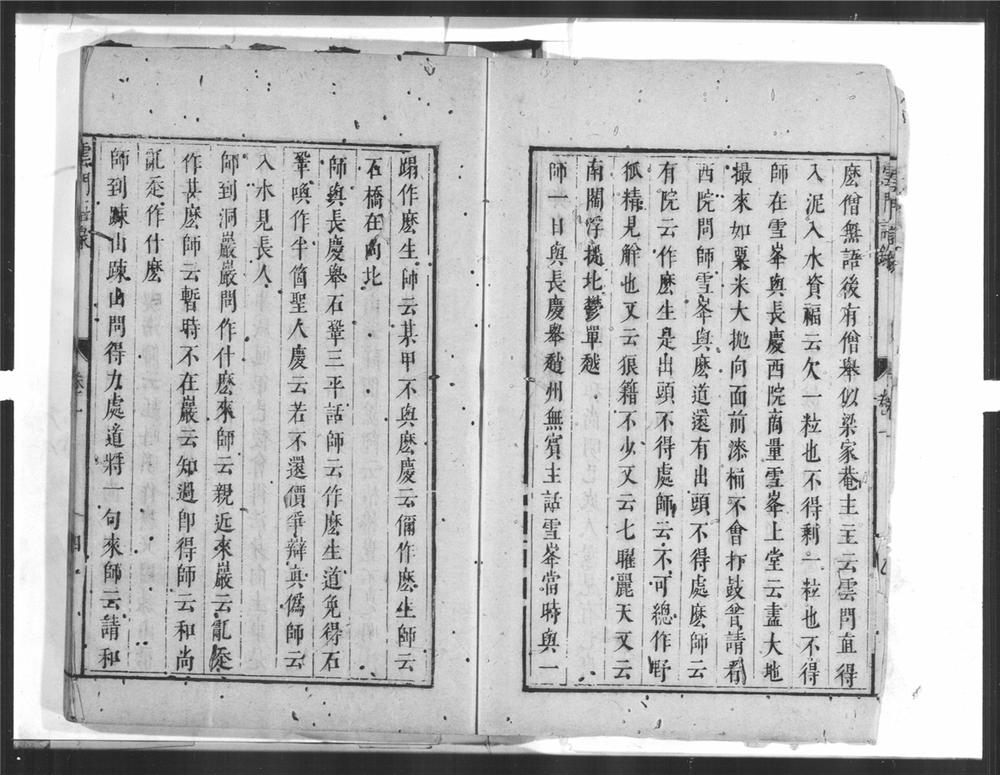 麽僧無語後有僧舉似梁家菴主主云雲門直得
入泥入水資福云欠一粒也不得剩一粒也不得
師在雪峯與長慶西院商量雪峯上堂云盡大地
撮來如粟米大拋向面前漆桶不會打鼓普請看
西院問師雪峯與麽道還有出頭不得處麽師云
有院云作麽生是出頭不得處師云不可總作野
狐精見解也又云狼籍不少又云七曜麗天又云
南閻浮提北鬱單越
師一日與長慶舉趙州無賓主話雪峯當時與一
雲門語錄
蹋作麽生師云某甲不與麽慶云儞作麽生師云
石橋在向北
師與長慶舉石鞏三平話師云作麽生道免得石
鞏喚作半箇聖人慶云若不還價爭辯真僞師云
入水見長人
師到洞巖巖問作什麽來師云親近來巖云亂走
作甚麽師云暫時不在巖云知過卽得師云和尚
亂走作什麽
師到踈山踈山問得力處道將一句來師云請和
雲門語錄
四